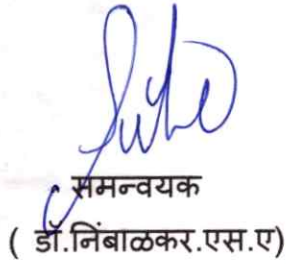 समन्वयक
( डॉ.निंबाळकर.एस.ए)